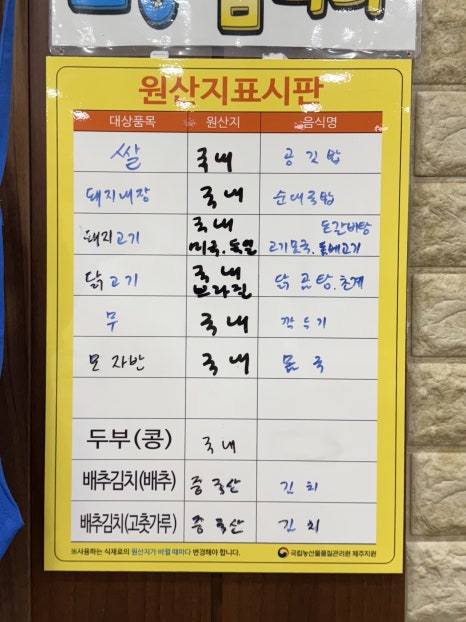 원산지표시판
대상품목 원산지 음식명
쌀 국내 공깃밥
돼지내장 국내 순대국밥
돼지고기 국내 돈갈비탕
미국.독일 고기몸국.돔베고기
닭고기 국내 닭곰탕.초계
브라질
무 국내 깍두기
모자반 국내 몸국
두부(콩) 국내
배추김치(배추) 중국산 김치
배추김치(고춧가루) 중국산 김치
※사용하는 식재료의 원산지가 바뀔 때마다 변경해야 합니다. 국립농산물품질관리원 제주지원